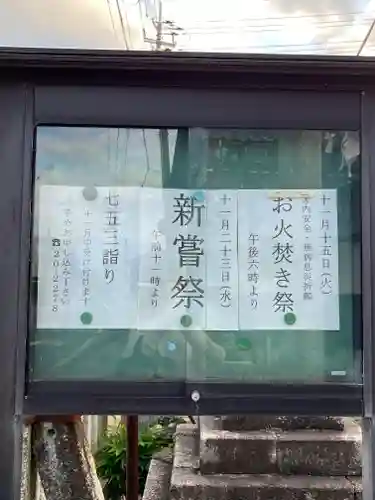 十一月十五日（火）
お火焚き祭
午後六時より
十一月二十三日（水）
新嘗祭
午前十一時より
七五三詣り
十一月中受け付けます